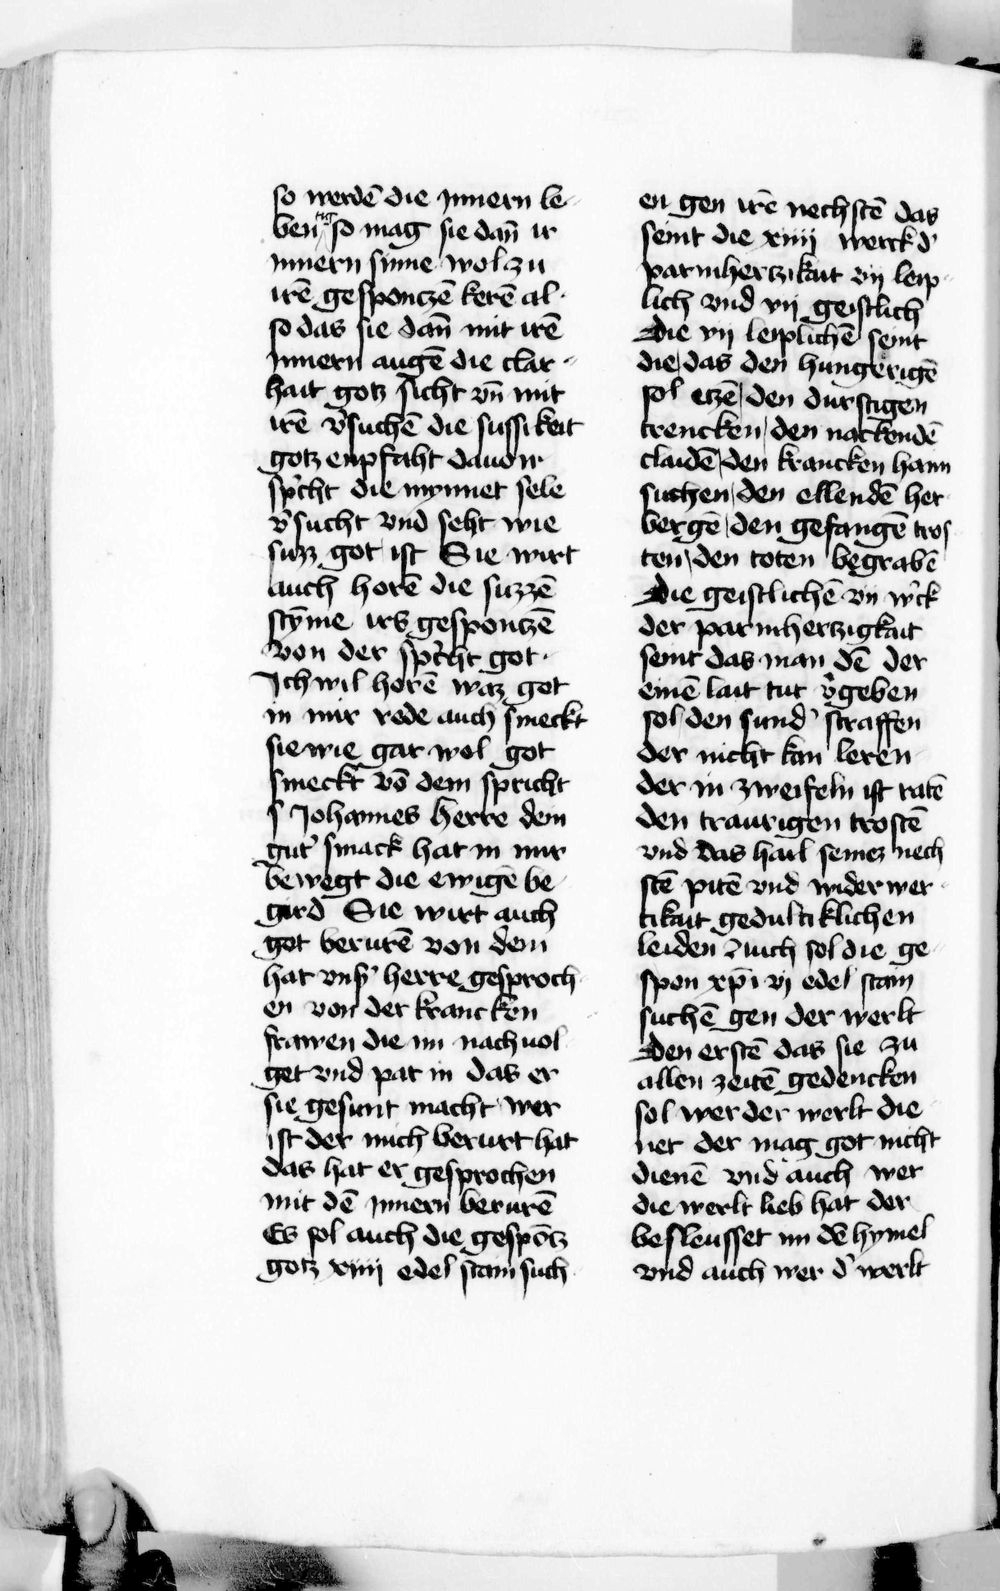 so werdē die jnnern le-
ben tig so mag sie dañ ir
jnnern sinne wol zu
irē gesponczē kerē al-
so das sie dañ mit irē
jnnern augē die clar-
hait gotz sicht vñ mit
irē v̾suchē die sussikeit
gotz enpfaht dauon
sp̾cht die mynnet sele
v̾sucht vnd seht wie
suzz got ist Sie wirt
auch horē die suzzē
stȳme irs gesponczē
von der sp̾cht got·
Jch wil horē waz got
in mir rede auch smeckt
sie wie gar wol got
smeckt vō dem spricht
s Johannes herre dein
gut̾ smack hat in mir
bewegt die ewigē be-
gird Sie wirt auch
got berurē von dem
hat vns̾ herre gesproch-
en von der krancken
frawen die im nachuol-
get vnd pat in das er
sie gesunt macht wer
ist der mich berurt hat
das hat er gesprochen
mit dē jnnern berurē
Es sol auch die gespōtz
gotz xiiij edel stain such-
en gen irē nechstē das
seint die xiiij werck d̾
parmhertzikait vij leip-
lich vnd vij geistlich
Die vij leiplichē seint
die das den hungerigē
sol etzē den durstigen
trencken den nackendē
claidē den krancken haim
suchen den ellendē her-
bergē den gefangē tros-
ten den toten begrabē
Die geistlichē vij w̾ck
der parmhertzigkait
seint das man dē der
einē lait tut v̾geben
sol den sund̾ straffen
der nicht kan leren
der in zweifeln ist ratē
den traurigen trostē
vnd das hail seinez nech
stē pitē vnd widerwer-
tikait gedultiklichen
leiden Auch sol die ge-
spon xp̄i vj edel stain
suchē gen der werlt
Den erstē das sie zu
allen zeitē gedencken
sol wer der werlt die-
net der mag got nicht
dienē vnd auch wer
die werlt lieb hat der
besleusset im dē hymel
vnd auch wer d̾ werlt